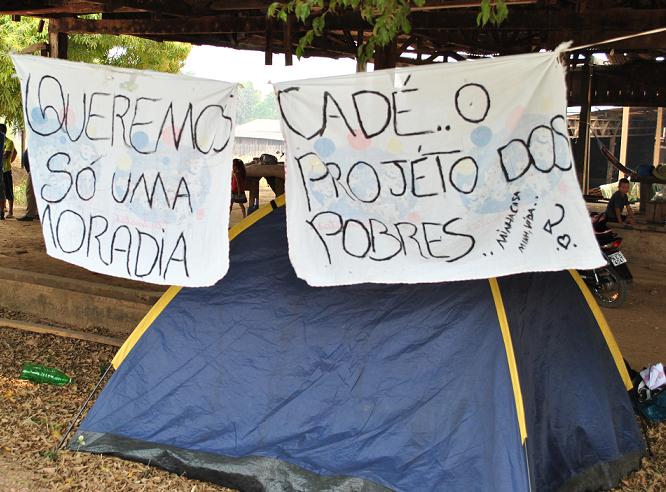 QUEREMOS
SÓ UMA
MORADIA
CADÉ..O
PROJÉTO DOS
POBRES..
MINHA CASA
MINHA VIDA..